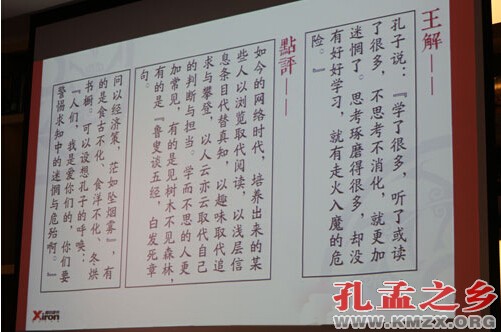 王解——
孔子说：『学了很多，听了或读
了很多，不思考不消化，就更加
迷惘了。思考琢磨得很多，却没
有好好学习，就有走火入魔的危
险。』
點評——
如今的网络时代，培养出来的某
些人以浏览取代阅读，以浅层信
息条目代替真知，以趣味取代追
求与攀登，以人云亦云取代自己
的判断与担当。学而不思的人更
加常见，有的是见树木不见森林，
有的是『鲁叟谈五经，白发死章
句。
问以经济策，茫如坠烟雾』，有
的是食古不化、食洋不化、冬烘
书橱。可以设想孔子的呼唤：
『人们，我是爱你们的，你们要
警惕求知中的迷惘与危殆啊。』
Xiron
孔孟之乡
WWW.KMZX.ORG